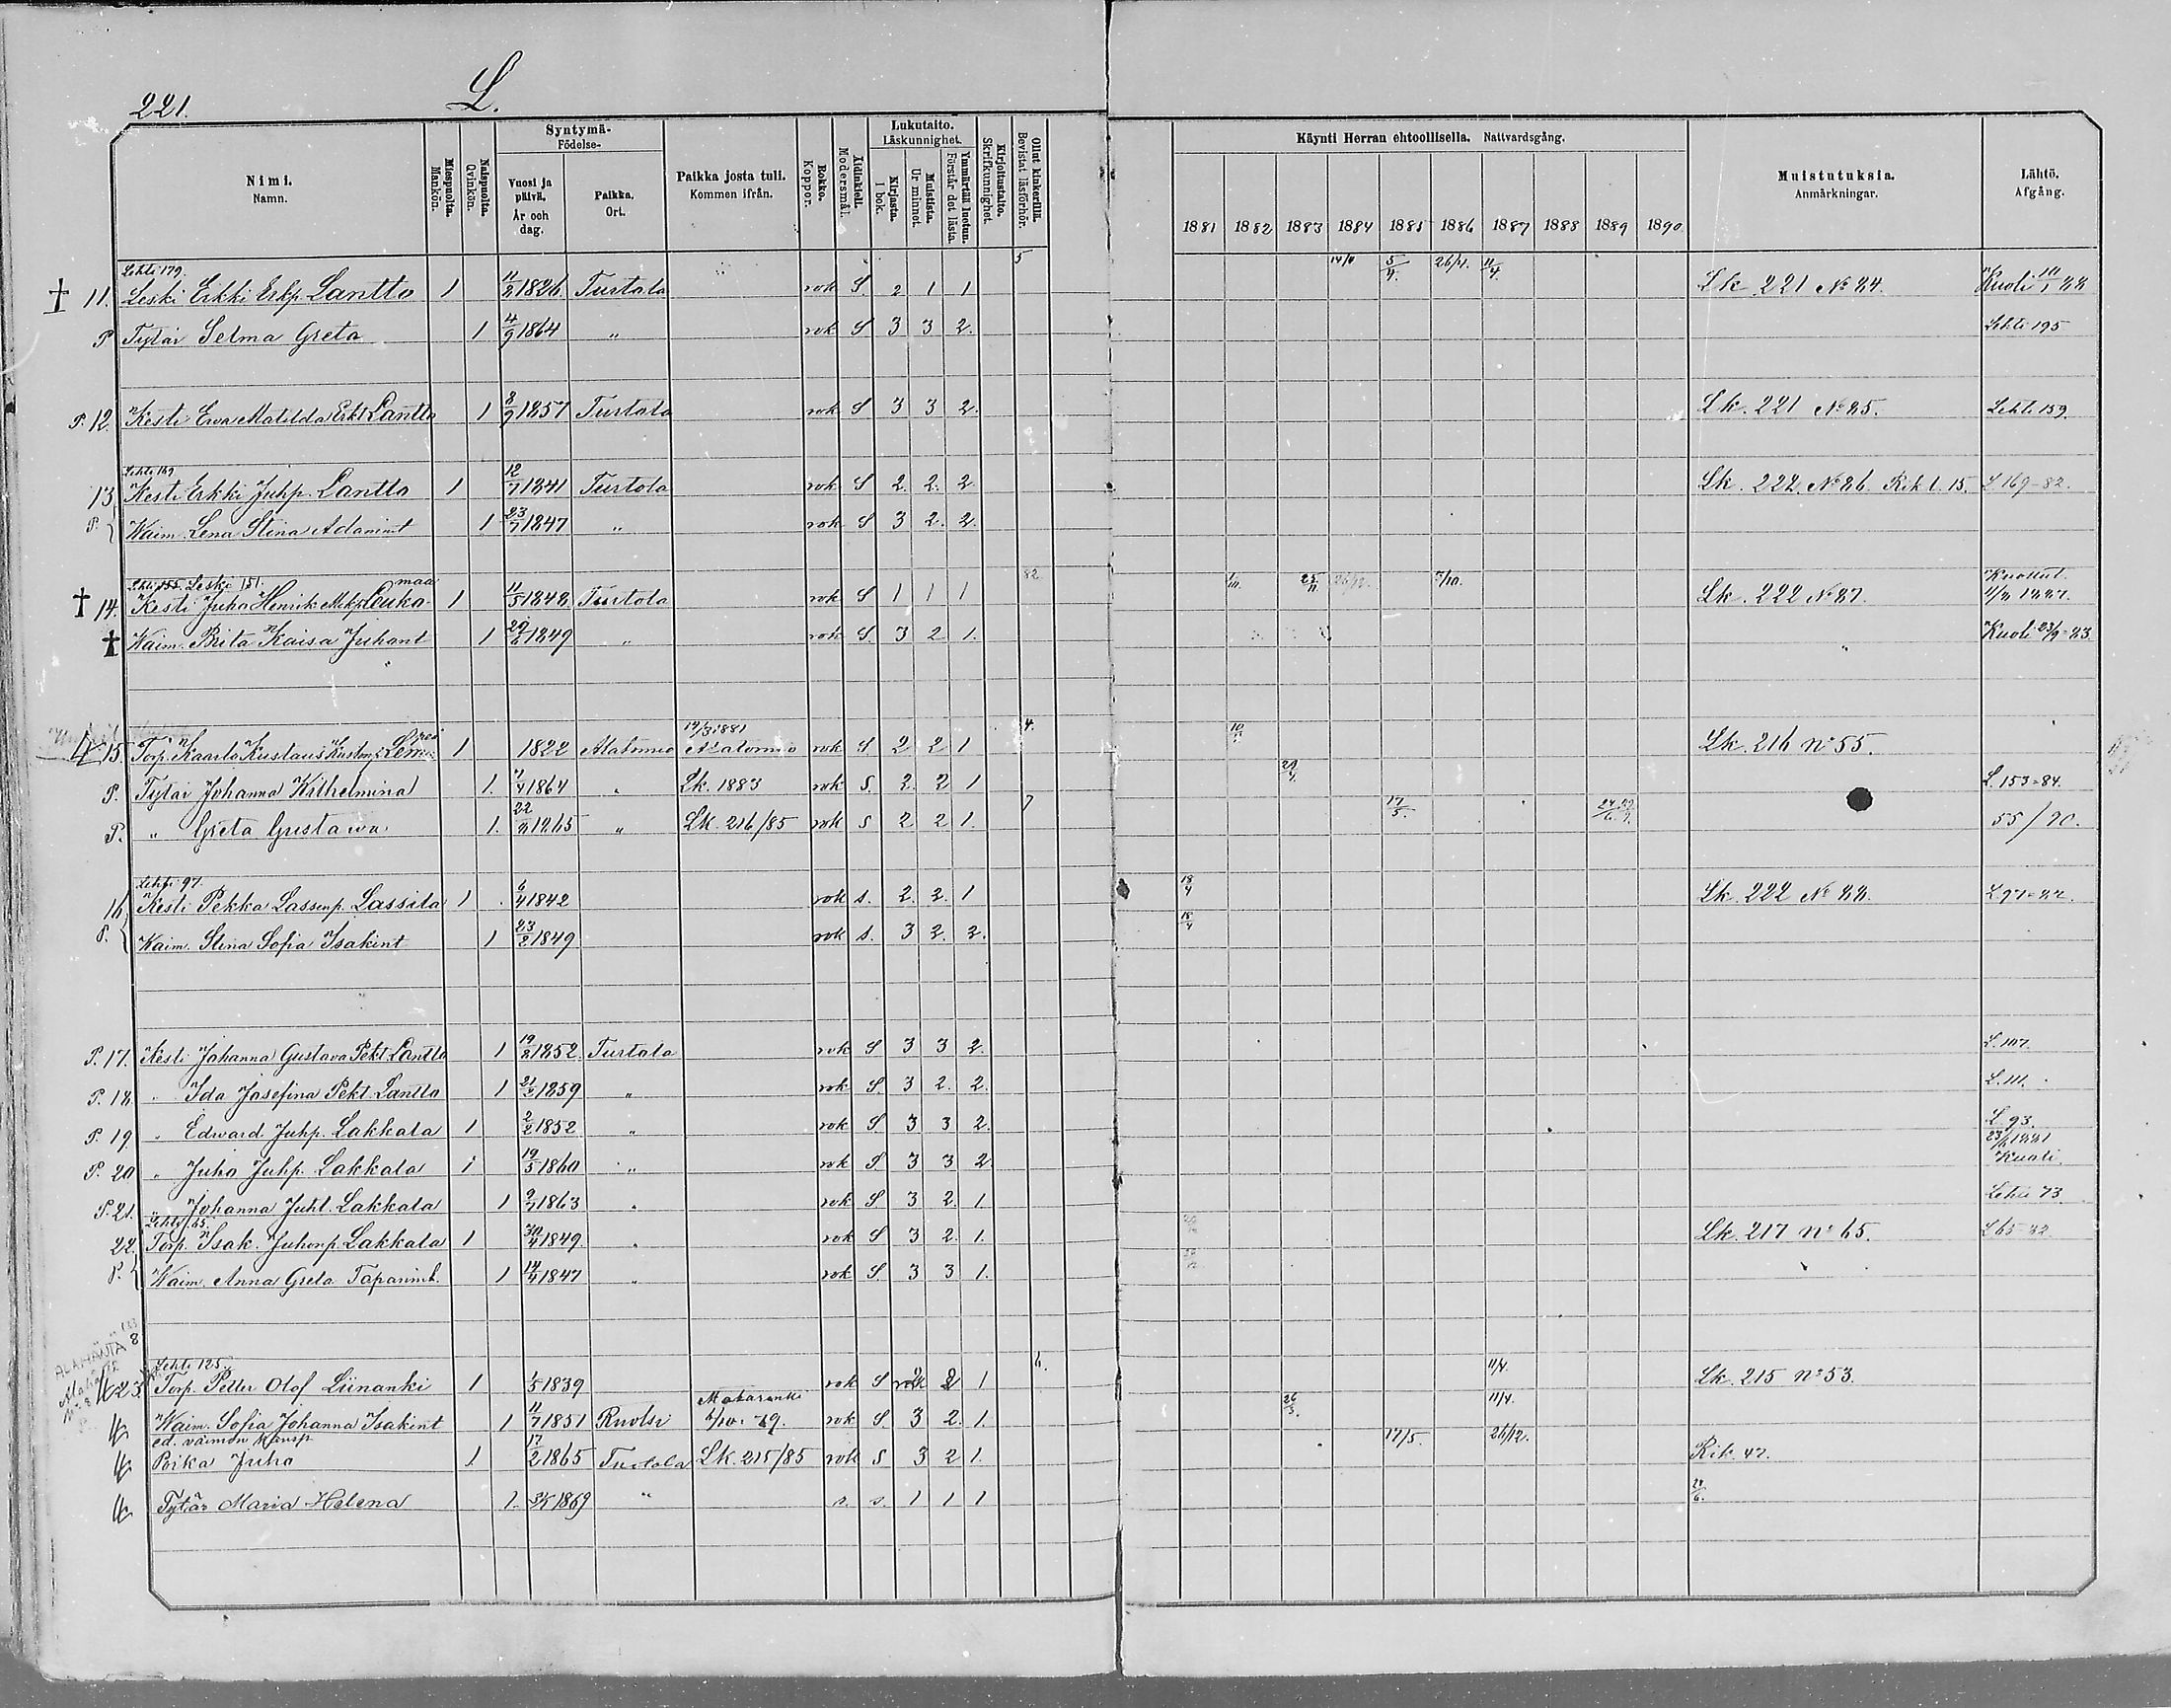 221.
L.
Nimi.
Namn.
Miespuolta.
Mankön.
Naispuolta.
Qvinkön.
Syntymä-
Födelse-
Vuosi ja päivä.
År och dag.
Paikka.
Ort.
Paikka josta tuli.
Kommen ifrån.
Rokko.
Koppor.
Äidinkieli.
Modersmål.
Lukutaito.
Läskunnighet.
Kirjasta.
I bok.
Muistista.
Ur minnet.
Ymmärtää luetun.
Förstår det lästa.
Kirjoitustaito.
Skrifkunnighet.
Ollut kinkerillä.
Bevistat läsförhör.
Käynti Herran ehtoollisella. Nattvardsgång.
1881 1882 1883 1884 1885 1886 1887 1888 1889 1890
Muistutuksia.
Anmärkningar.
Lähtö.
Afgång.
Lehti 179. 5
† 11. Leski Erkki Erkp. Lantto 1 11/2 1826 Turtola rok S. 2 1 1 5/4. 26/4. 11/4. Lk 221 No 84. Kuoli 88
P Tytär Selma Greta 1 4/9 1864 „ rok S 3 3 2. Lehti 195
P. 12. Kesti Ewa Matilda Erkt Lantto 1 8/9 1857 Turtola rok S 3 3 2. Lk. 221 No 85. Lehti 159.
Lehti 169
13 Kesti Erkki Juhp. Lantto 1 12/7 1841 Turtola rok S 2. 2. 2 Lk. 222. No 86. Rik l. 15. L 169-82.
P. Waim. Lena Stina Adamint 1 23/7 1847 „ rok S 3 2. 2.
Lehti 155. Leski 151. maa 82
† 14. Kesti Juha Henrik Mikp Leuka- 1 11/5 1848 Turtola rok S 1 1 1 25/11 26/12. 7/10. Lk. 222 No 87. Kuollut 1887.
† Waim. Brita Kaisa Juhant 1 29/6 1849 „ rok S. 3 2 1. Kuoli 23/9-83.
19/3 1881 4.
15 Torp. Kaarlo Kustaus Kustmp. 1 1822 Alatornio Alatornio rok S. 2 2 1 Lk. 216 No 55.
P. Tytär Johanna Wilhelmina 1. 7/4 1864 „ Lk. 1883 rok S. 2. 2 1 29/4. L. 153-84.
P. „ Greta Gustawa 1. 22 1865 „ Lk. 216/85 rok S 2 2 1. 7 17/5. 55/90.
Lehti 97.
16 Kesti Pekka Lassenp. Lassila 1 6/4 1842 rok s. 2. 2. 1 18/4 Lk. 222 No 88. L 97-82.
P. Waim. Stina Sofia Isakint 1 23/2 1849 rok s. 3 2. 2. 18/4
P. 17. Kesti Johanna Gustava Pekt Lantto 1 19/8 1852. Turtola rok S 3 3 2. L. 107.
P. 18. „ Ida Josefina Pekt. Lantto 1 21/2 1859 „ rok S. 3 2. 2. L. 111.
P. 19 „ Edward Juhp. Lakkala 1 2/2 1852 „ rok S. 3 3 2. L 93.
P. 20 „ Juho Juhp. Lakkala 1 19/5 1860 „ rok S 3 3 2 1881 Kuoli.
P. 21. „ Johanna Juht. Lakkala 1 9/7 1863 „ rok S. 3 2. 1. Lehti 73
Lehti 65.
22. Torp. Isak. Juhonp. Lakkala 1 30/4 1849. „ rok S 3 2. 1. Lk. 217 No 65. L 65-82
P. Waim. Anna Greta Tapanint. 1 14/4 1847 „ rok S. 3 3 1.
ALAHÄNTÄ 8
Lehti 125. 4. 11/4.
23 Torp. Petter Olof Liinanki 1 1/5 1839 rok S 2 2 1 Lk. 215 No 53.
Matarenki
Waim. Sofia Johanna Isakint 1 11/7 1851 Ruotsi 6/10. 79. rok S. 3 2. 1. 26/3. 11/4.
ed. vaimon kanssp
Poika Juho 1 17/2 1865 Turtola Lk. 215/85 rok S 3 2 1. 17/5. 26/12. Rik. 47.
Tytär Maria Helena 1. 1869 „ r. s. 1 1 1